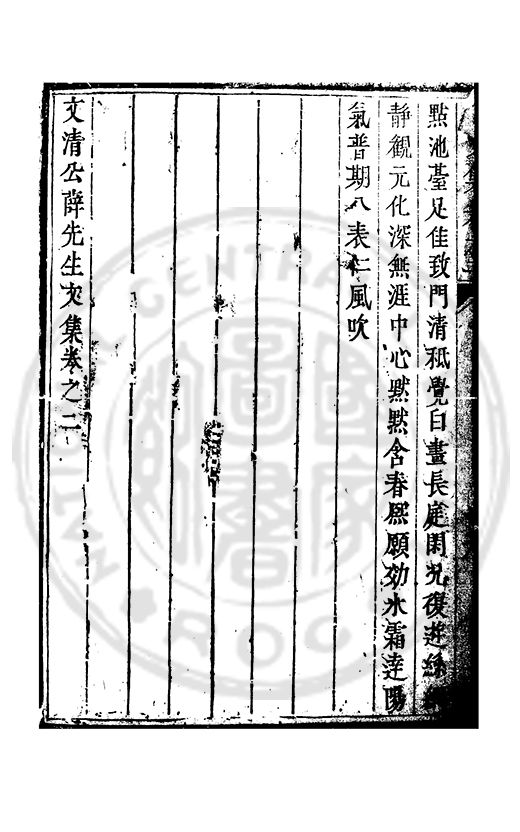 㸃池臺足佳致門清秪覺白晝長庭閑况復遊絲
静觀元化深無涯中心黙黙含春熙願効氷霜達陽
氣普期八表仁風吹
文清公薛先生文集卷之二